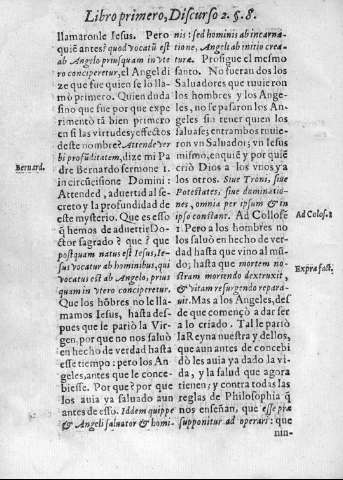 Libro primero, Discurso 2. §. 8.
llamaronle Iesus. Pero
quiē antes? quod vocatū est
ab Angelo priusquam in vte
ro conciperetur, el Angel di
ze que fue quien se lla
mò primero. Quien duda
sino que fue por que expe
rimentò tā bien primero
en si las virtudes y effectos
deste nombre? Attende ver
bi profūditatem, dize mi Pa
dre Bernardo sermone 1.
in circūcisione Domini:
Attended, aduertid al se
creto y la profundidad de
este mysterio. Que es esso
q̄ hemos de aduertir Do
ctor sagrado? que? que
postquam natus est Iesus, Ie
sus vocatur ab hominibus, qui
vocatus est ab Angelo, prius
quam in vtero conciperetur.
Que los hōbres no le lla
mamos Iesus, hasta des
pues que le pariò la Vir
gen, por que no nos saluò
en hecho de verdad hasta
esse tiempo: pero los An
geles, antes que le conce
biesse. Por que? por que
los auia ya saluado aun
antes de esso. Iddem quippe
& Angeli saluator & homi-
Bernard.
nis: sed hominis ab incarna
tione, Angeli ab initio crea
turæ. Prosigue el mesmo
santo. No fueran dos los
Saluadores que tuuieron
los hombres y los Ange
les, no se passaron los An
geles sin tener quien los
saluasse; entrambos tuuie
ron vn Saluador; vn Iesus
mismo, en quiē y por quiē
criò Dios a los vnos y a
los otros. Siue Troni, siue
Potestates, siue dominatio
nes, omnia per ipsum & in
ipso constant. Ad Collose
1. Pero a los hombres no
los saluò en hecho de ver
dad hasta que vino al mū
do; hasta que mortem no
stram moriendo dextruxit,
& vitam resurgendo repara-
uit. Mas a los Angeles, des
de que començò a dar ser
a lo criado. Tal le pariò
la Reyna nuestra y dellos,
que aun antes de concebi
dò les auia ya dado la vi
da, y la salud que agora
tienen; y contra todas las
reglas de Philosophia q̄
nos enseñan, que esse præ
supponitur ad operari: que
nin-
Ad Colos. 1
Ex præfact.